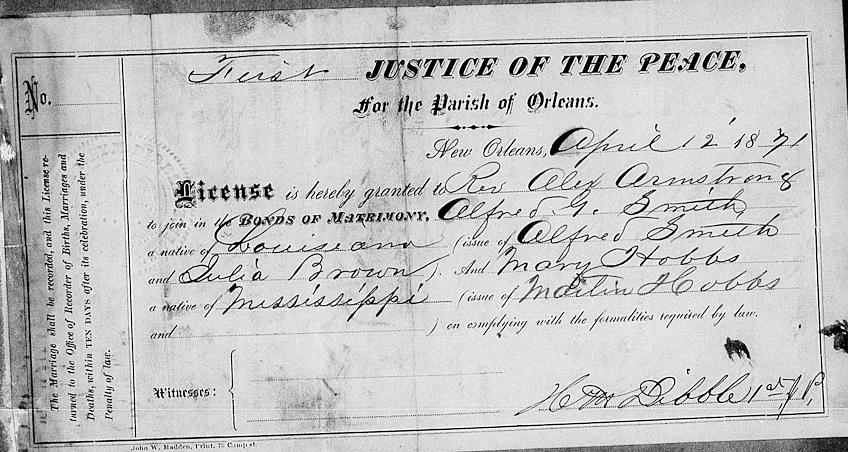 First JUSTICE OF THE PEACE,
For the Parish of Orleans.
New Orleans, April 12 1871
License is hereby granted to Rev Alex Armstrong
to join in the BONDS OF MATRIMONY, Alfred G. Smith
a native of Louiseana (issue of Alfred Smith
and Julia Brown ). And Mary Hobbs
a native of Mississippi (issue of Martin Hobbs
and ) on complying with the formalities required by law.
Witnesses:
H Dibble 1st J P,
No.
The Marriage shall be recorded, and this License re-
turned to the Office of Recorder of Births, Marriages and
Deaths, within TEN DAYS after its celebration, under the
Penalty of law.
John W. Madden, Print, Camp st.